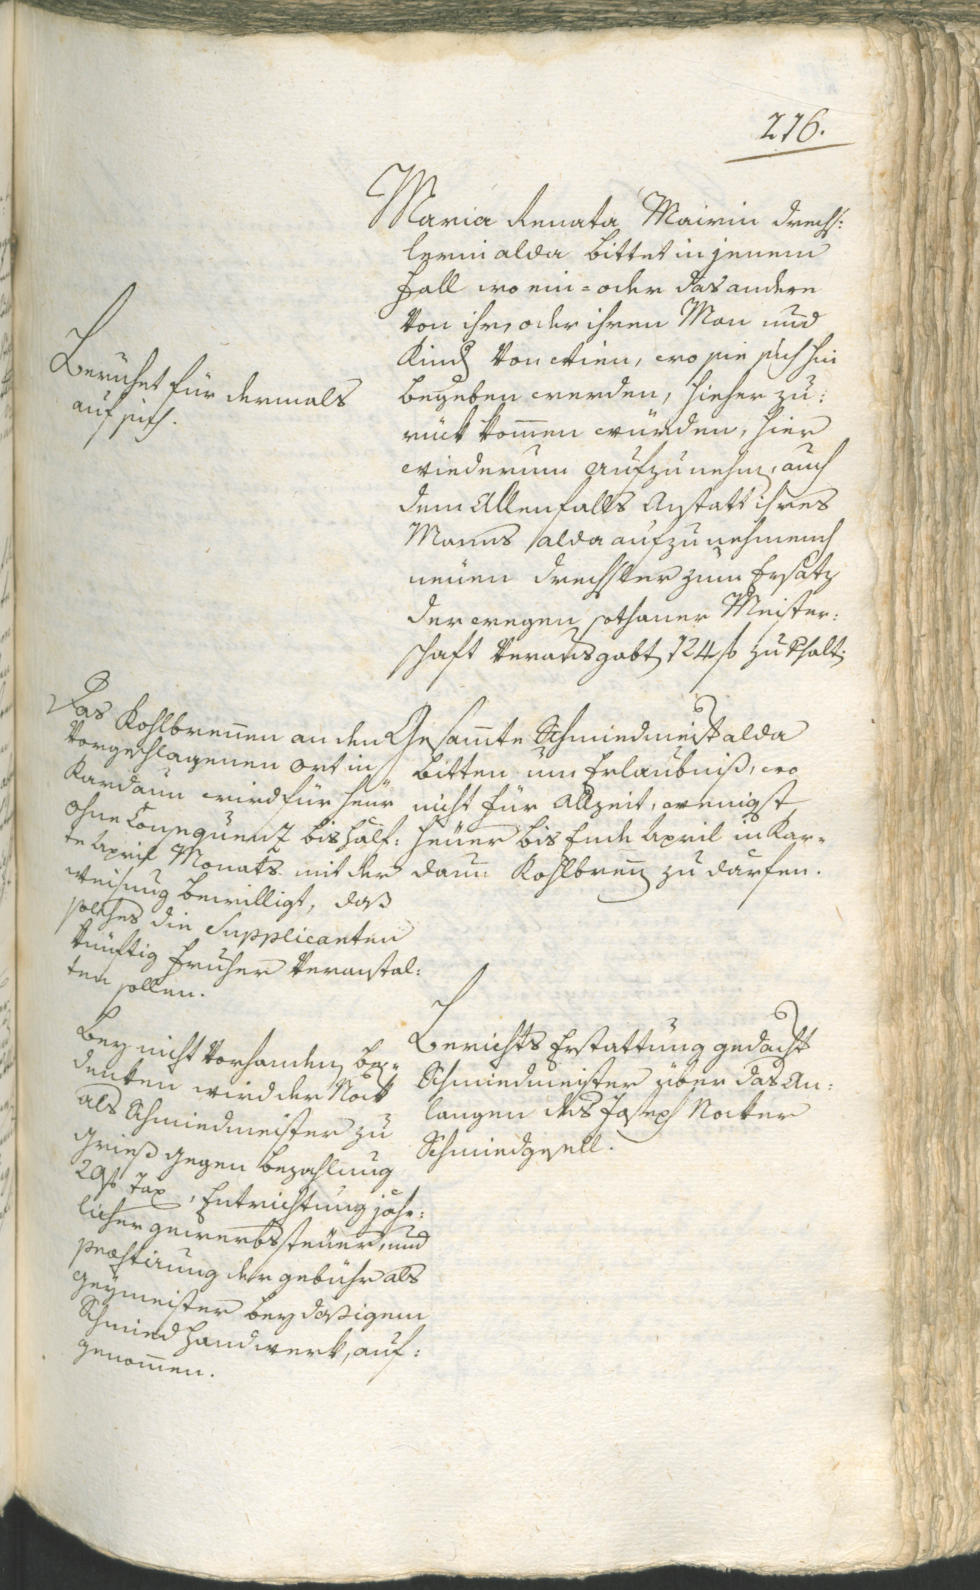 216.
Maria Renata Mairin drechs:
lerin alda bittet in jenem
Fall wo ein= oder das andere
von ihr, oder ihren Man und
Kind von Wien, wo sie sich hin
begeben werden, hieher zu:
rück komen würden, hier
wiederum aufzunehmen, auch
dem allenfalls anstatt ihres
Manns alda aufzunehmend
neuen drechsler zum Ersatz
der wegen sothaner Meister:
schaft verausgabt 124 f zu
Beruhet für dermals
auf sich.
Gesamte Schmiedmeister alda
bitten um Erlaubniß, wo
nicht für allzeit, wenigst
heuer bis Ende April in Kar=
daun Kohlbrenen zu därfen.
Das Kohlbrenen an den
vorgeschlagenen ort in
Kardaun wird für heur
ohne Consequenz bis half:
te April Monats mit der
weisung bewilligt, daß
solches die Supplicanten
künftig früher veranstal:
ten sollen.
Berichts Erstattung gedacht
Schmiedmeister über das An:
langen des Joseph Nocker
Schmiedgesell.
Bey nicht vorhanden be=
denken wird der Nock
als Schmiedmeister zu
Grieß gegen bezahlung
Tax, Entrichtung jähr:
licher gewerbssteuer, und
praestirung der gebühr als
geymeister bey dasigem
Schmied Handwerk, auf:
genomen.